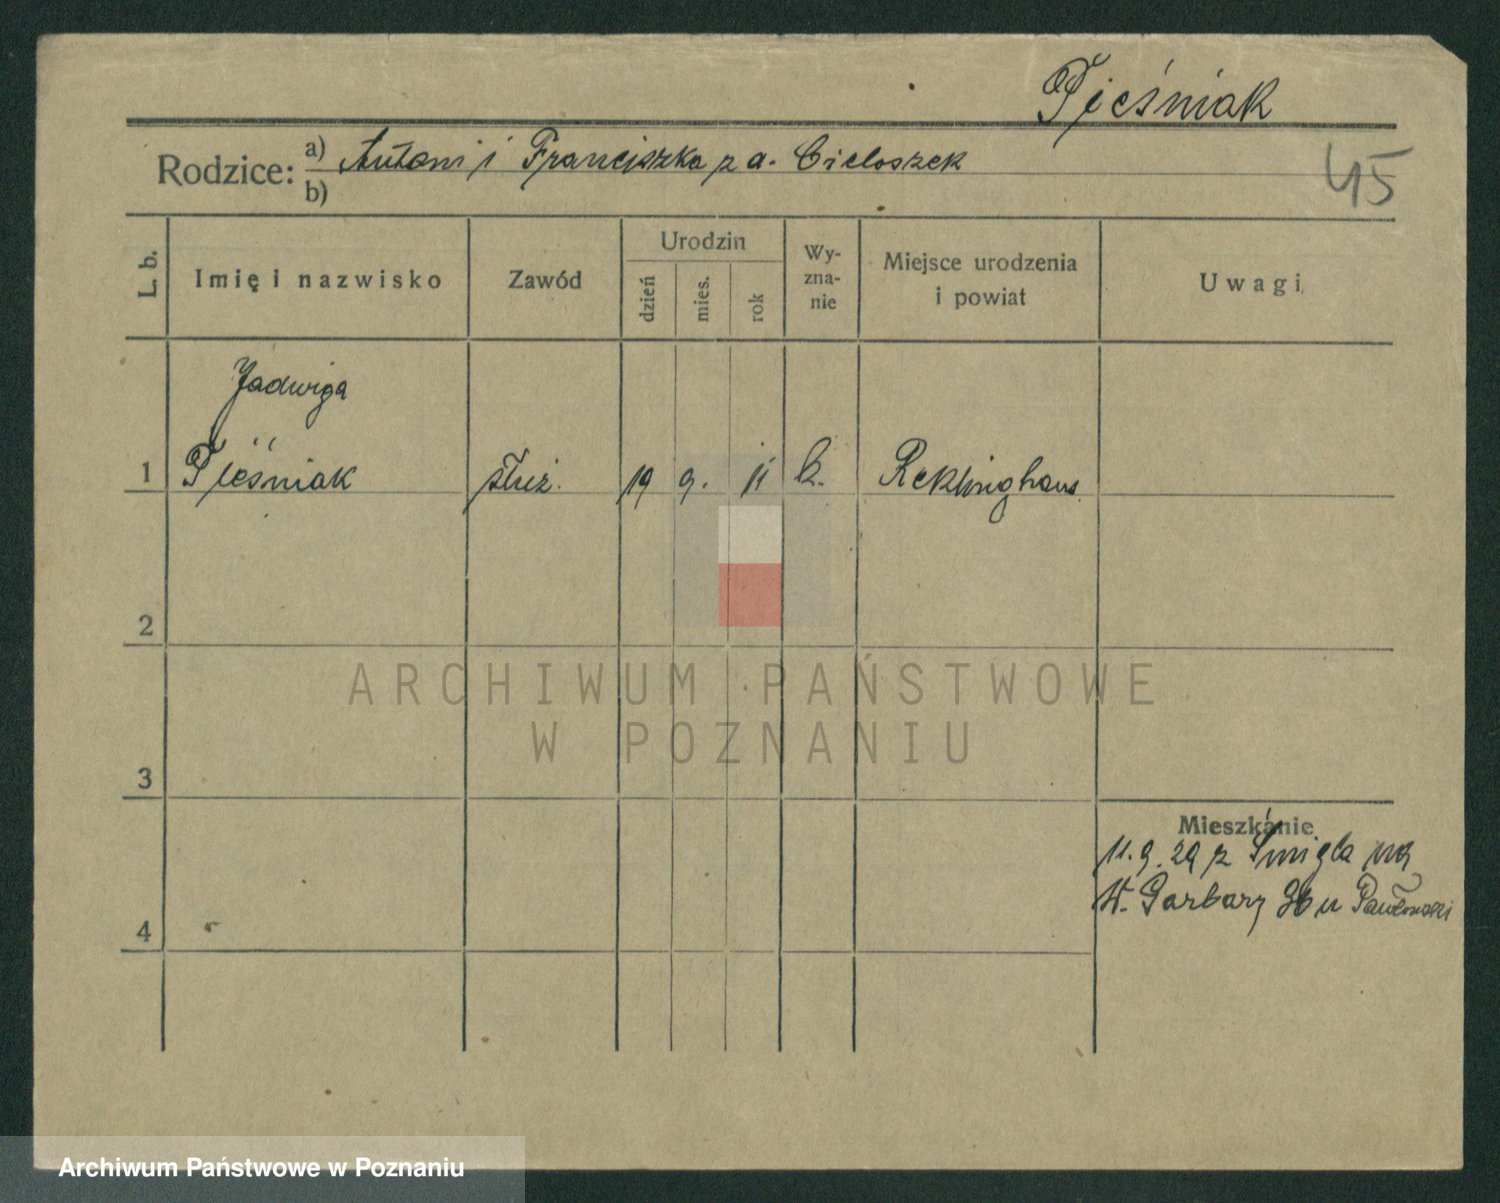 Pieśniak
Rodzice: a) Antoni i Franciszka z d. Cieloszek
b)
45
L. b.
Imię i nazwisko
Zawód
Urodzin
dzień
mies.
rok
Wy-
zna-
nie
Miejsce urodzenia
i powiat
Uwagi
Jadwiga
1 Pieśniak służ. 19 9. 11 k. Reklinghaus.
2
3
Mieszkanie
11.9.29 z Śmigla na
W. Garbary 36 u Pawłowski
4
ARCHIWUM PAŃSTWOWE
W POZNANIU
Archiwum Państwowe w Poznaniu